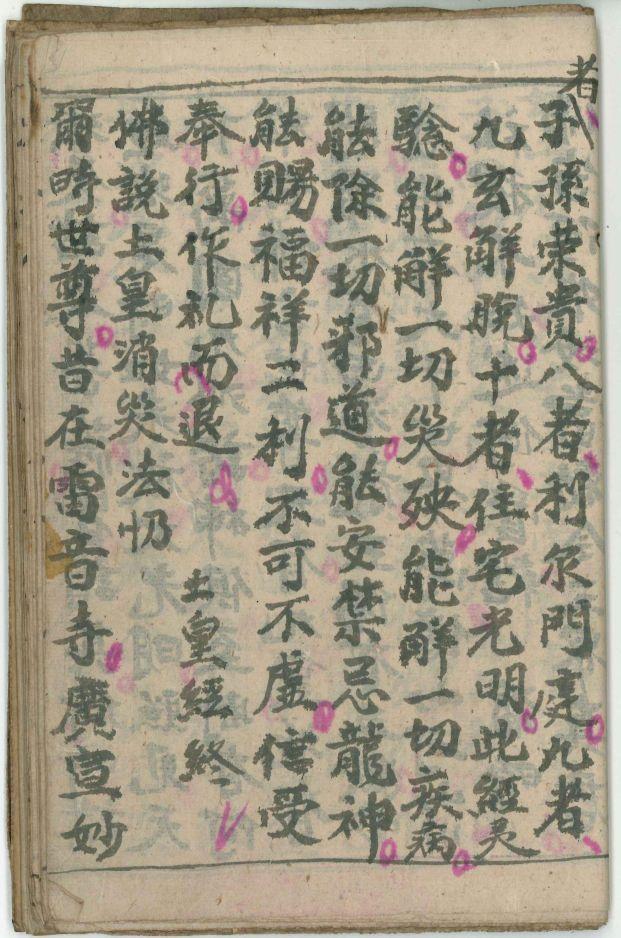 者
子孫荣貴八者利尔門庭九者
九玄解脱十者住宅光明此經灵
騐能解一切災殃能解一切疾病
能除一切邪道能安禁忌龍神
能賜福祥二利不可不虚信受
奉行作礼而退　土皇經終
佛説土皇消災法忉
爾時世尊昔在雷音寺廣宣妙